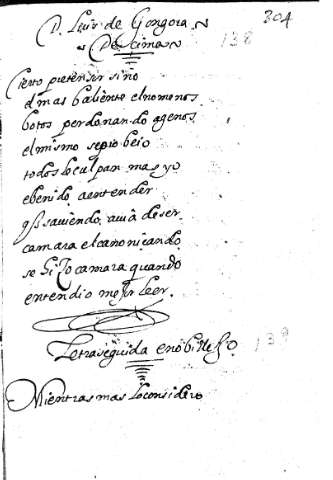 304
D. Luis de Gongora
Decimas
138
Cierto pretensor si no
el mas baliente el no menos
botos perdonando agenos
el mismo se probeio
todos lo culpan mas yo
e benido a entender
q̃ saviendo, avia de ser
camara el canonicando
se hiço camara quando
entendio mejor leer.
Letra seguida
139
Mientras mas lo considero